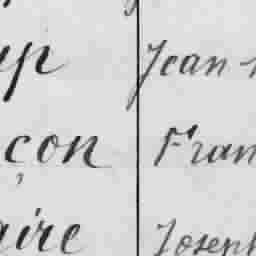 Jean
çon Fran
aire Joseph